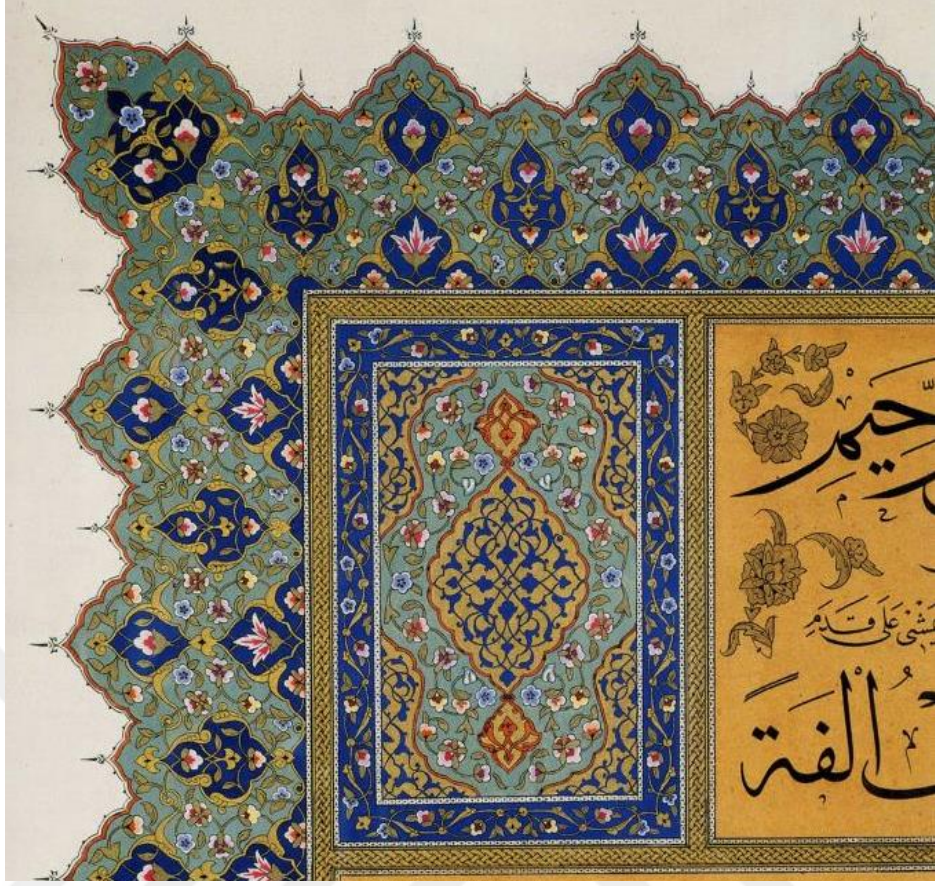 حيم
يَمْشِى عَلَى قَدَمِ
الفة